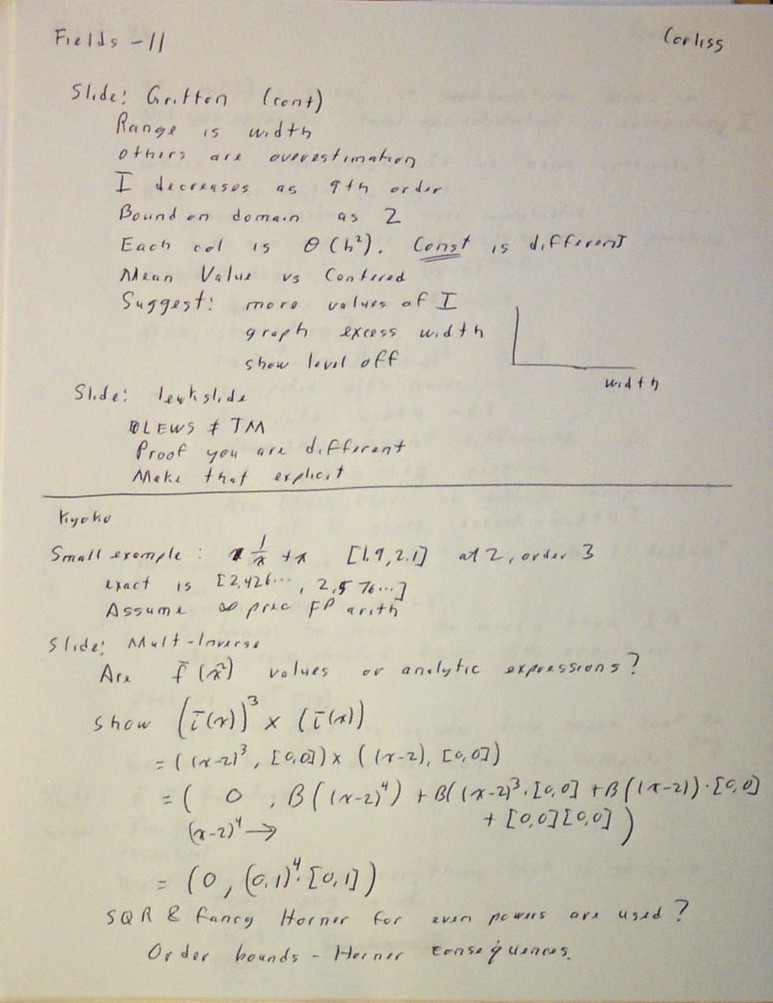 Fields - 11 Corliss
Slide: Gritton (cont)
Range is width
others are overestimation
I decreases as 9th order
Bound on domain as 2
Each col is Θ(h²). Const is different
Mean Value vs Centered
Suggest: more values of I
graph excess width
show level off
width
Slide:
BLEWS ≠ TM
Proof you are different
Make that explicit
Kyoko
Small example: 1/x + x [1.9, 2.1] at 2, order 3
exact is [2.426..., 2.576...]
Assume ∞ prec FP arith
Slide: Mult-Inverse
Are f̄(x̂) values or analytic expressions?
show (ī(x))³ × (ī(x))
= ((x-2)³, [0,0]) × ((x-2), [0,0])
= ( 0 , B((x-2)⁴) + B((x-2)³·[0,0] + B((x-2))·[0,0]
(x-2)⁴ → + [0,0][0,0] )
= (0, (0.1)⁴·[0,1])
SQR & fancy Horner for even powers are used?
Order bounds - Horner consequences.